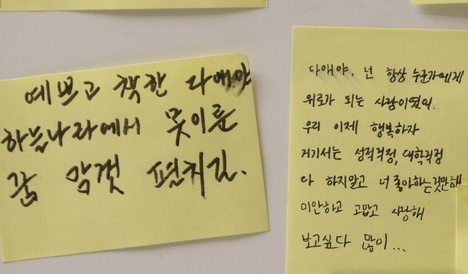 예쁘고 착한 다애야
하늘나라에서 못이룬
꿈 맘껏 펼치길.
다애야, 넌 항상 누군가에게
위로가 되는 사람이였어.
우리 이제 행복하자
거기서는 성적걱정, 대학걱정
다 하지말고 너 좋아하는것만해
미안하고 고맙고 사랑해
보고싶다 많이...